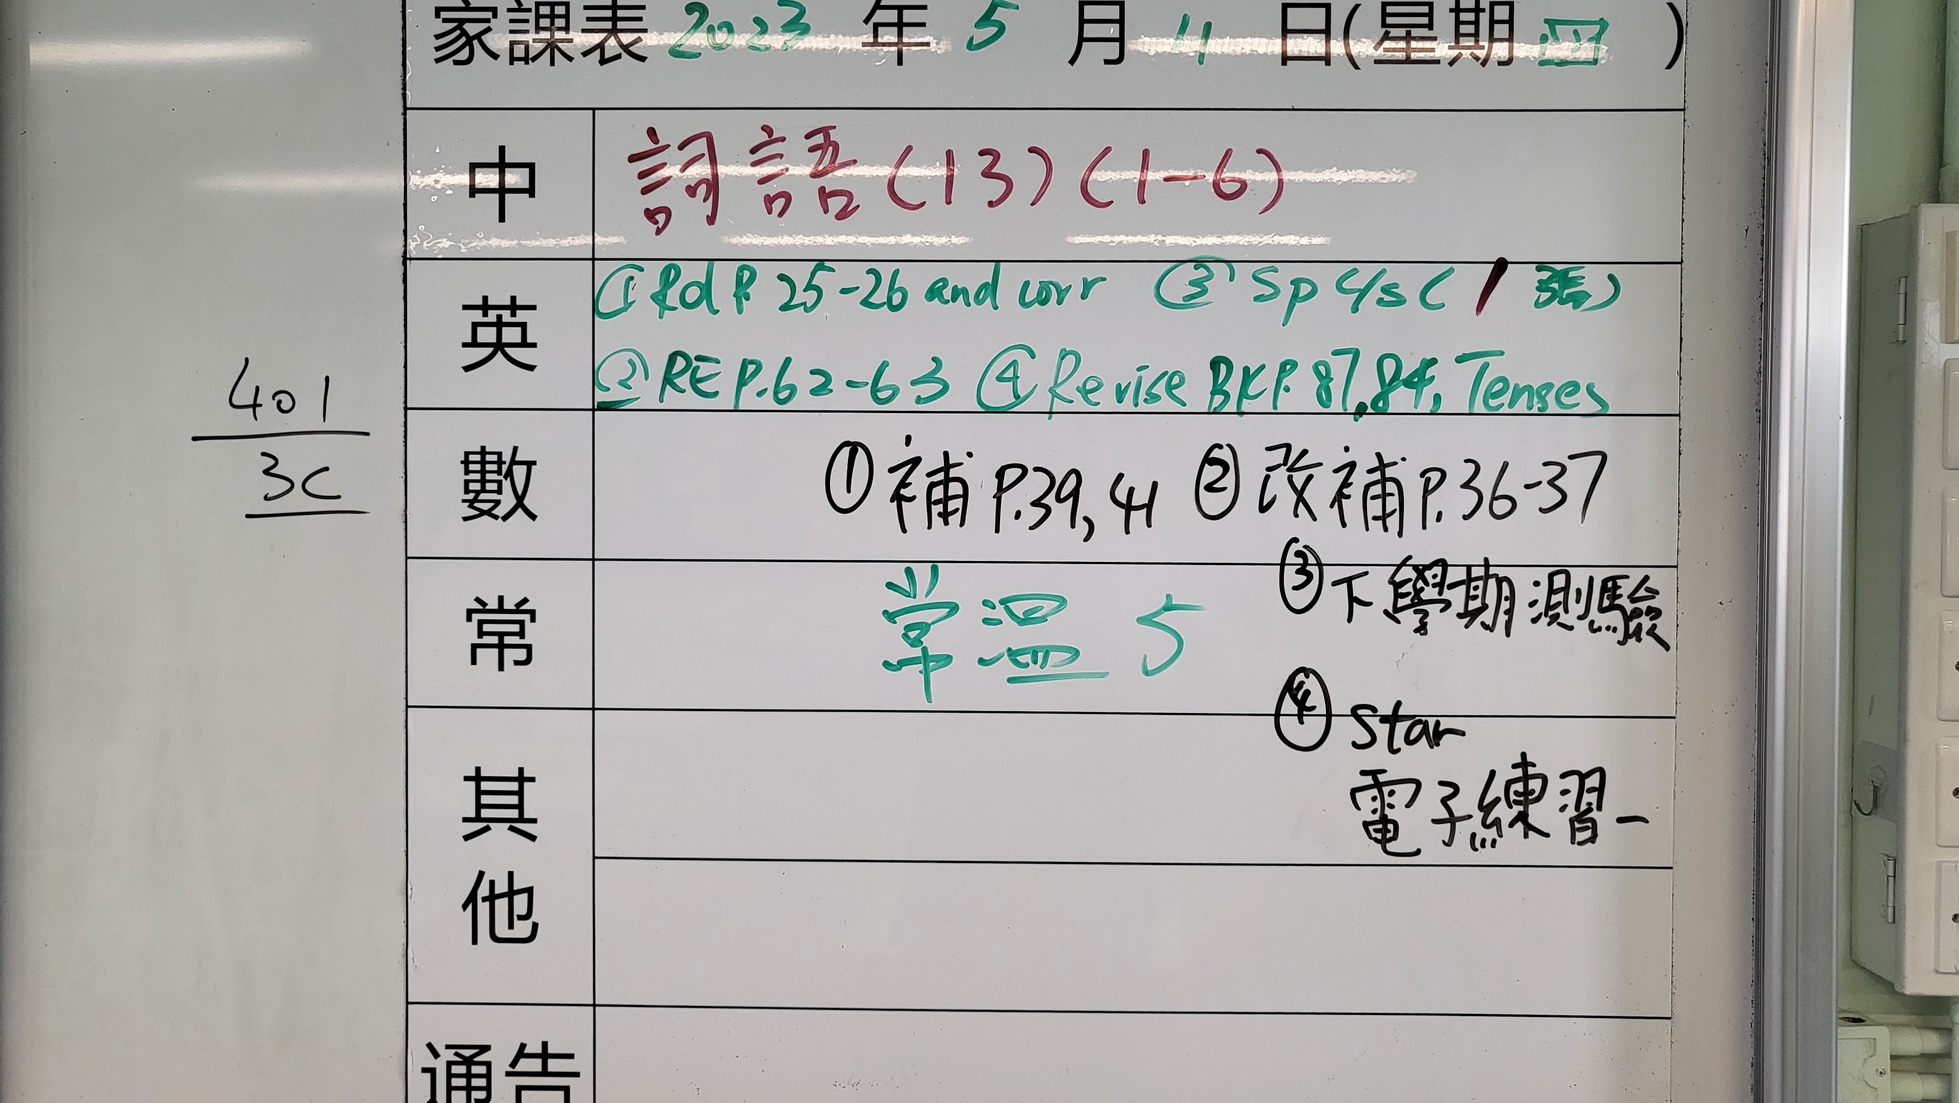 家課表 2023 年 5 月 11 日(星期 四 )
中
詞語(13)(1-6)
英
①Rd P. 25-26 and corr ③Sp C/s (1張)
②RE P.62-63 ④Revise BK P. 87,84, Tenses
401
3C
數
①補P.39,41 ②改補P.36-37
③下學期測驗
常
常溫 5
④ Star
電子練習一
其他
通告